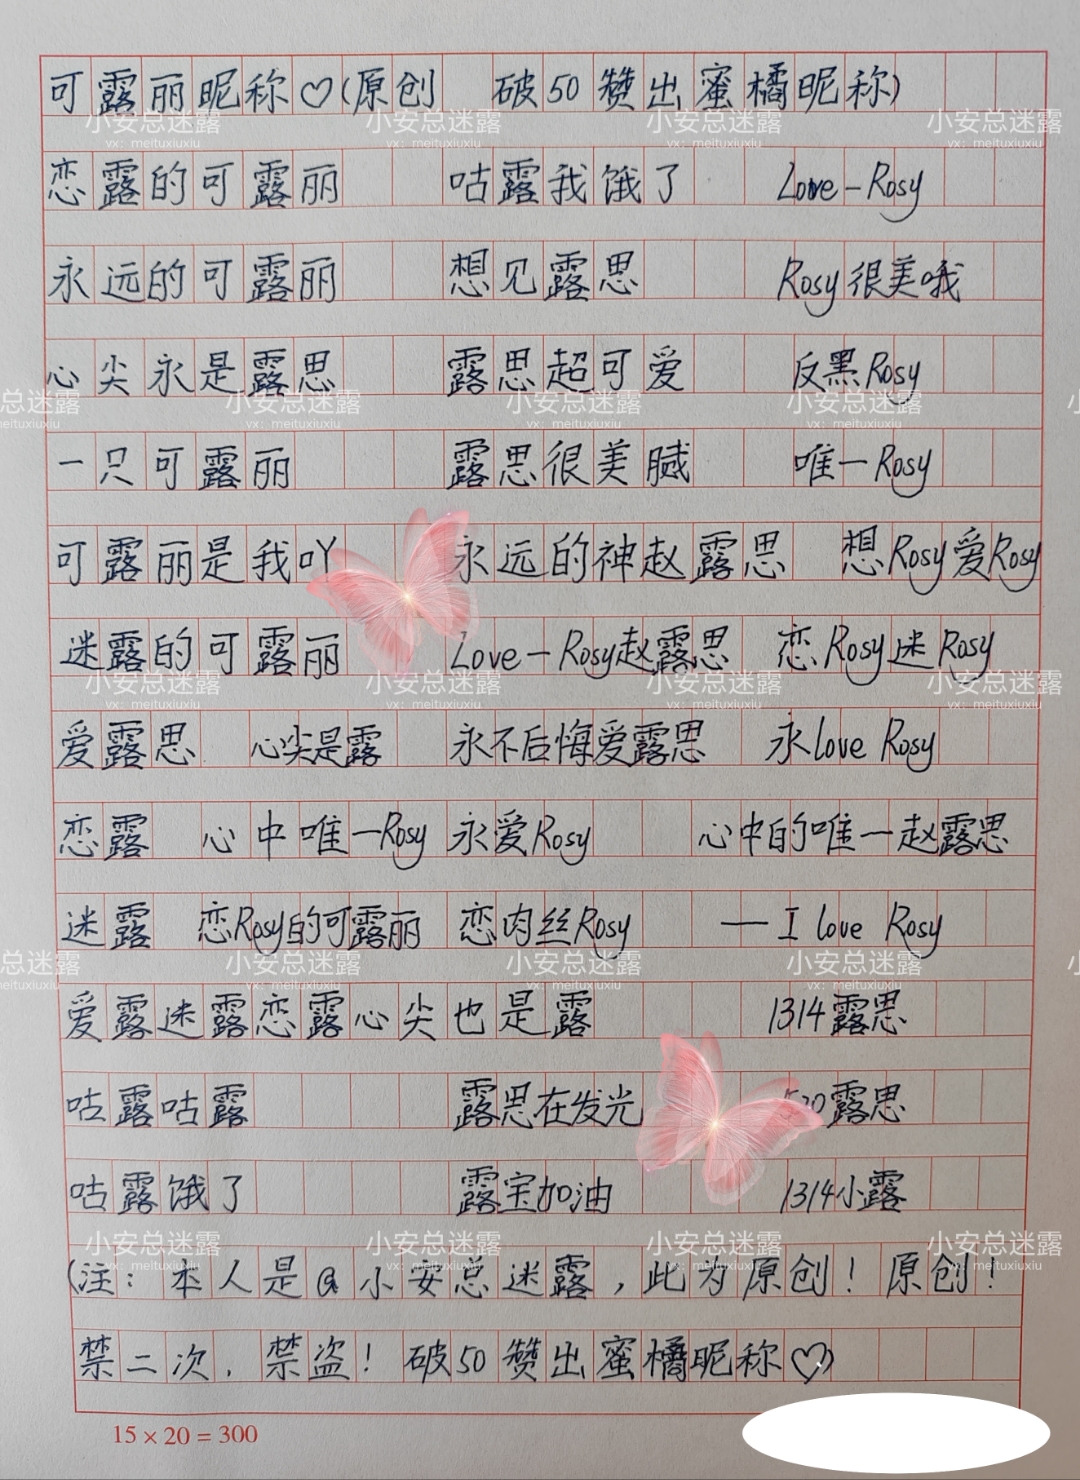 可露丽昵称♡(原创 破50赞出蜜橘昵称)
恋露的可露丽 咕露我饿了 Love-Rosy
永远的可露丽 想见露思 Rosy很美哦
心尖永是露思 露思超可爱 反黑Rosy
一只可露丽 露思很美腻 唯一Rosy
可露丽是我吖 永远的神赵露思 想Rosy爱Rosy
迷露的可露丽 Love-Rosy赵露思 恋Rosy迷Rosy
爱露思 心尖是露 永不后悔爱露思 永love Rosy
恋露 心中唯一Rosy 永爱Rosy 心中的唯一赵露思
迷露 恋Rosy的可露丽 恋肉丝Rosy 一I love Rosy
爱露迷露恋露心尖也是露 1314露思
咕露咕露 露思在发光 520露思
咕露饿了 露宝加油 1314小露
(注:本人是@小安总迷露,此为原创!原创!
禁二次,禁盗!破50赞出蜜橘昵称♡)
15×20=300
小安总迷露
vx:meituxiuxiu